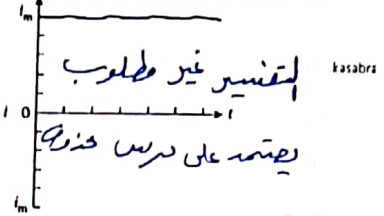 i_m
التفسير غير مطلوب
kasabra
i 0 t
يعتمد على درس محذوف
i_m